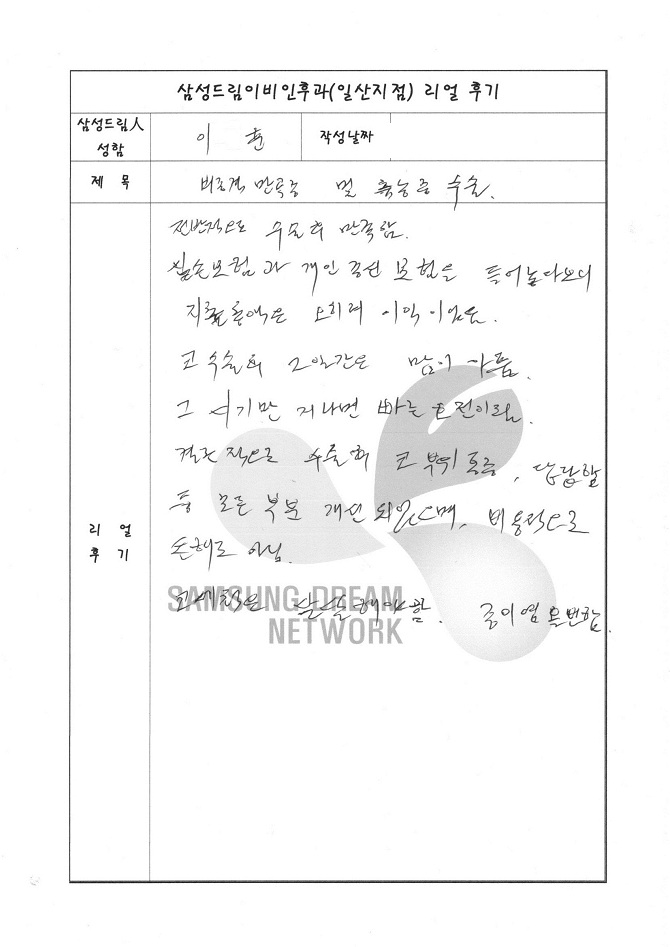 삼성드림이비인후과(일산지점) 리얼 후기
삼성드림人
성함
이 훈
작성날짜
제 목
비중격 만곡증 및 축농증 수술.
전반적으로 수술후 만족함.
실손보험과 개인 종신 보험을 들어놓다보니
지출총액은 오히려 이익이었음.
코 수술후 2일간은 많이 아픔.
그 시기만 지나면 빠른 호전이됨.
결론적으로 수술후 코 부위 통증, 답답함
등 모든 부분 개선 되었으며, 비용적으로
손해도 아님.
코세척은 해야함. 중이염
리 얼
후 기
SAMSUNG DREAM
NETWORK